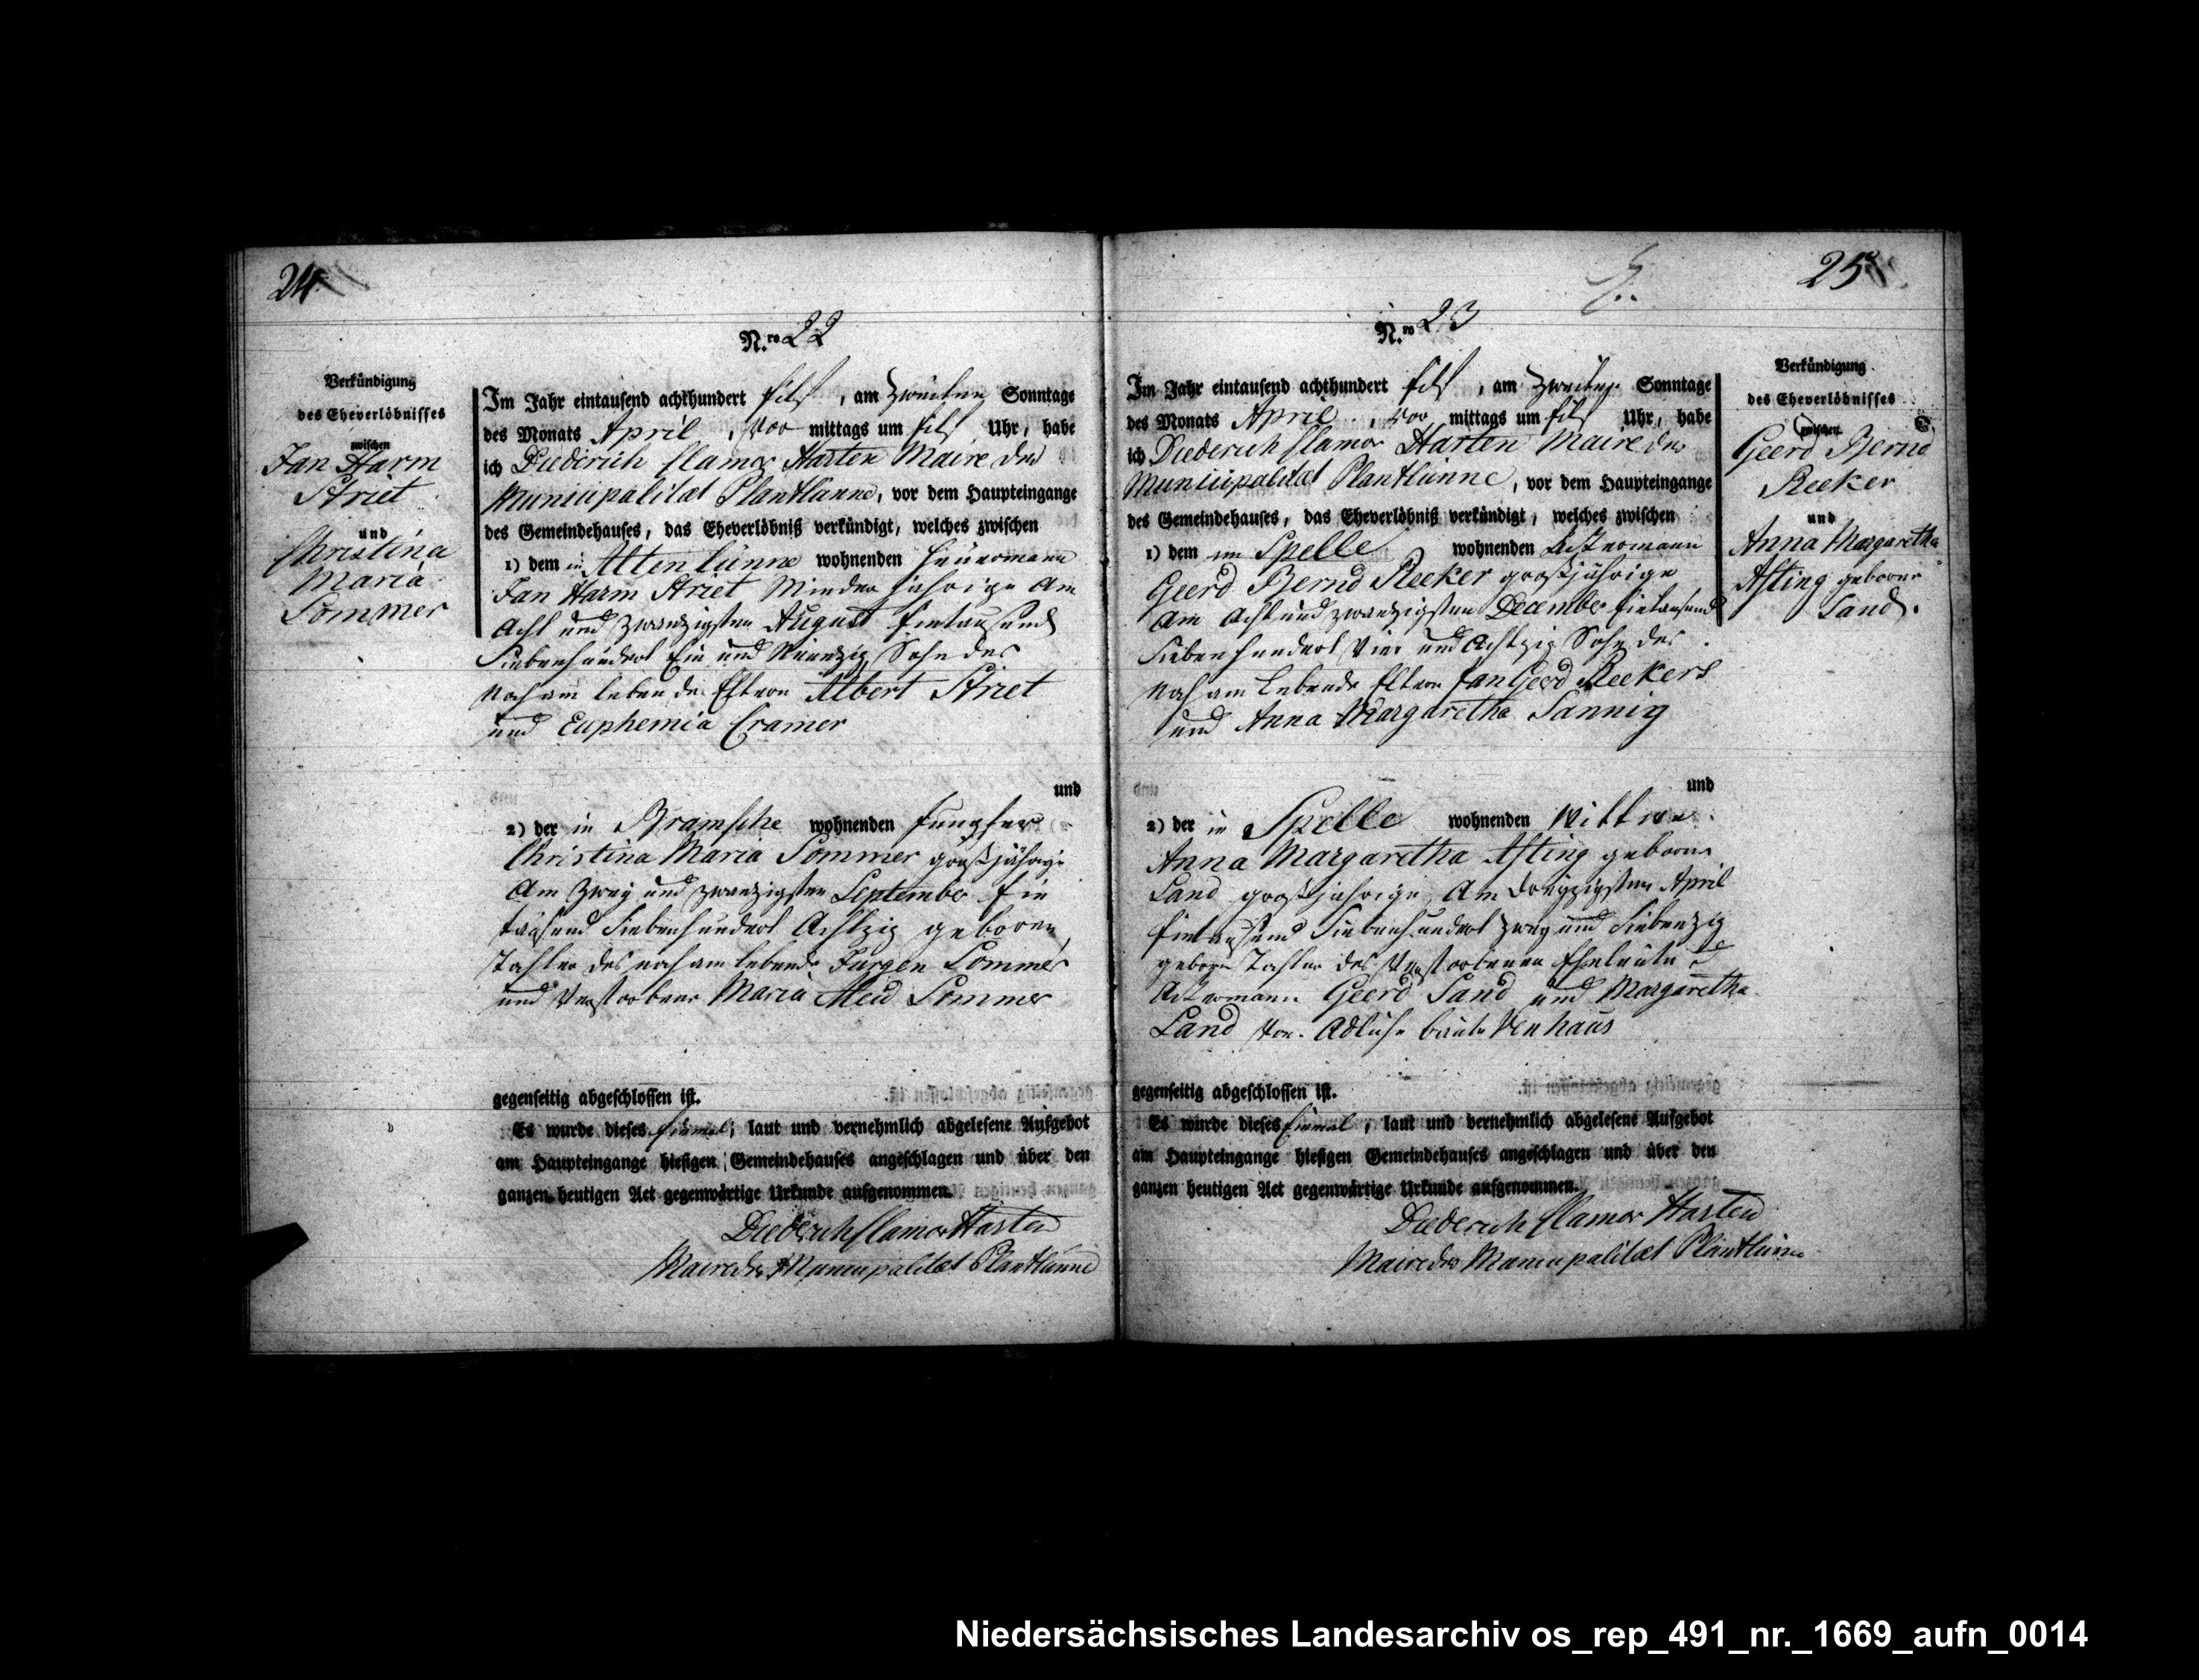 24
N.ro 22
Verkündigung
des Eheverlöbnisses
zwischen
Jan Harm
Striet
und
Christina
Maria
Sommer
Im Jahr eintausend achthundert Eilf, am Zweiten Sonntage
des Monats April, Vor mittags um Eilf Uhr, habe
ich Diederich Clamor Harten Maire der
Municipalitæt Plantlünne, vor dem Haupteingange
des Gemeindehauses, das Eheverlöbniß verkündigt, welches zwischen
1) dem in Altenlünne wohnenden Heuermann
Jan Harm Striet Minderjährige Am
Acht und Zwanzigsten August Eintausend
Siebenhundert Ein und Neunzig Sohn des
Noch am lebende Eltern Albert Striet
und Euphemia Cramer
und
2) der in Bramsche wohnenden Jungfer
Christina Maria Sommer großjährige
Am Zwey und zwanzigsten September Ein
tausend Siebenhundert Achtzig geboren,
Tochter des noch am lebende Jurgen Sommer
und Verstorbene Maria Sommer
gegenseitig abgeschlossen ist.
Es wurde dieses Einmal, laut und vernehmlich abgelesene Aufgebot
am Haupteingange hiesigen Gemeindehauses angeschlagen und über den
ganzen heutigen Act gegenwärtige Urkunde aufgenommen.
Diederich Clamor Harten
Maire der Municipalitæt Plantlünne
25
N.ro 23
Verkündigung
des Eheverlöbnisses
zwischen
Geerd Bernd
Reeker
und
Anna Margaretha
Asting geborne
Sand.
Im Jahr eintausend achthundert Eilf, am Zweiten Sonntage
des Monats April, Vor mittags um Eilf Uhr, habe
ich Diederich Clamor Harten Maire der
Municipalitæt Plantlünne, vor dem Haupteingange
des Gemeindehauses, das Eheverlöbniß verkündigt, welches zwischen
1) dem im Spelle wohnenden Ackermann
Geerd Bernd Reeker großjährige
Am Acht und zwanzigsten December Eintausend
Siebenhundert Vier und Achtzig Sohn des
Noch am Lebende Eltern Jan Geerd Reekers
und Anna Margaretha Sannig
und
2) der in Spelle wohnenden Wittwe
Anna Margaretha Asting geborne
Sand großjährige Am Dreyzigsten April
Eintausend Siebenhundert Zwey und Siebenzig
geboren Tochter des Verstorbenen Eheleute
Ackermann Geerd Sand und Margaretha
Sand Von Adliche Venhaus
gegenseitig abgeschlossen ist.
Es wurde dieses Einmal, laut und vernehmlich abgelesene Aufgebot
am Haupteingange hiesigen Gemeindehauses angeschlagen und über den
ganzen heutigen Act gegenwärtige Urkunde aufgenommen.
Diederich Clamor Harten
Maire der Municipalitæt Plantlünne
Niedersächsisches Landesarchiv os_rep_491_nr._1669_aufn_0014